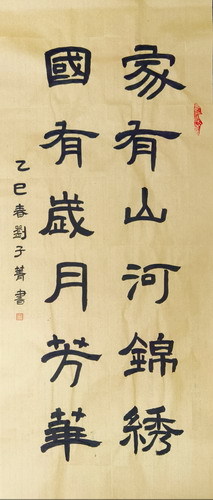 家有山河錦綉
國有歲月芳華
乙巳春劉子菁書